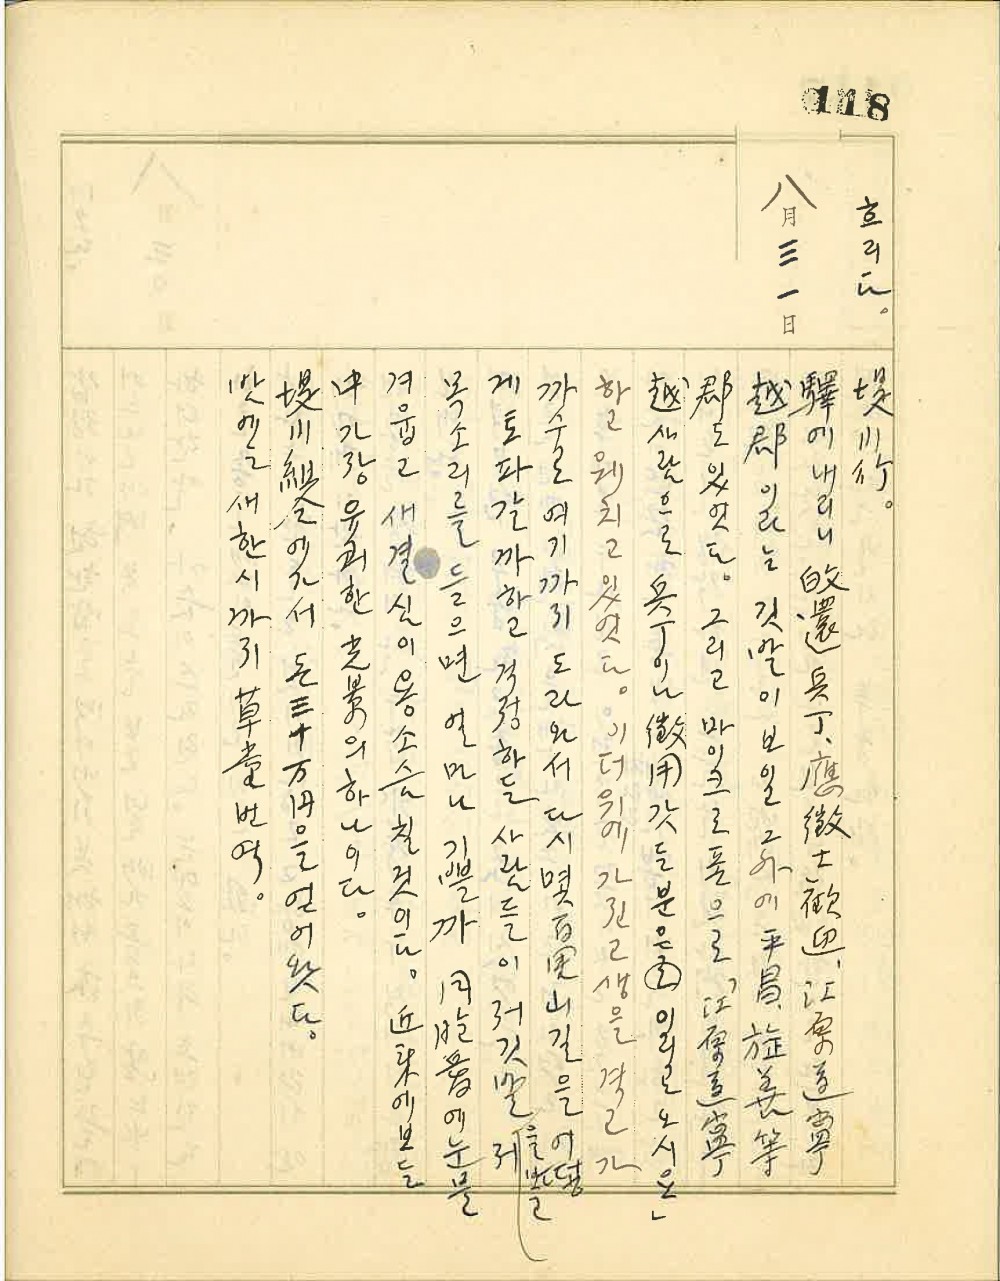 118
흐리다。
八月三一日
堤川行。
驛에내리니 皈還兵丁、應徵士歡迎、江原道寧
越郡 이라는 깃빨이보일 그外에 平昌、旌善等
郡도있엇다。 그리고 마이크로폰으로 「江原道寧
越사람으로 兵丁이나 徵用갓든분은 이리로오시요」
하고 웨치고있엇다。 이더위에 가진고생을 격고 가
까수로 여기까지 도라와서 다시 몇百里山길을 어떻
게 토파갈까하고 걱정하든 사람들이 저깃빨을보고 저
목소리를 들으면 얼마나 기쁠까 同胞愛에눈물
겨웁고 새결심이용소슴칠것이다。 近来에보든
中 가장 유쾌한 光景의하나이다。
堤川組合에가서 돈三十万円을얻어왓다。
밧에는 새한시까지 草堂번역。